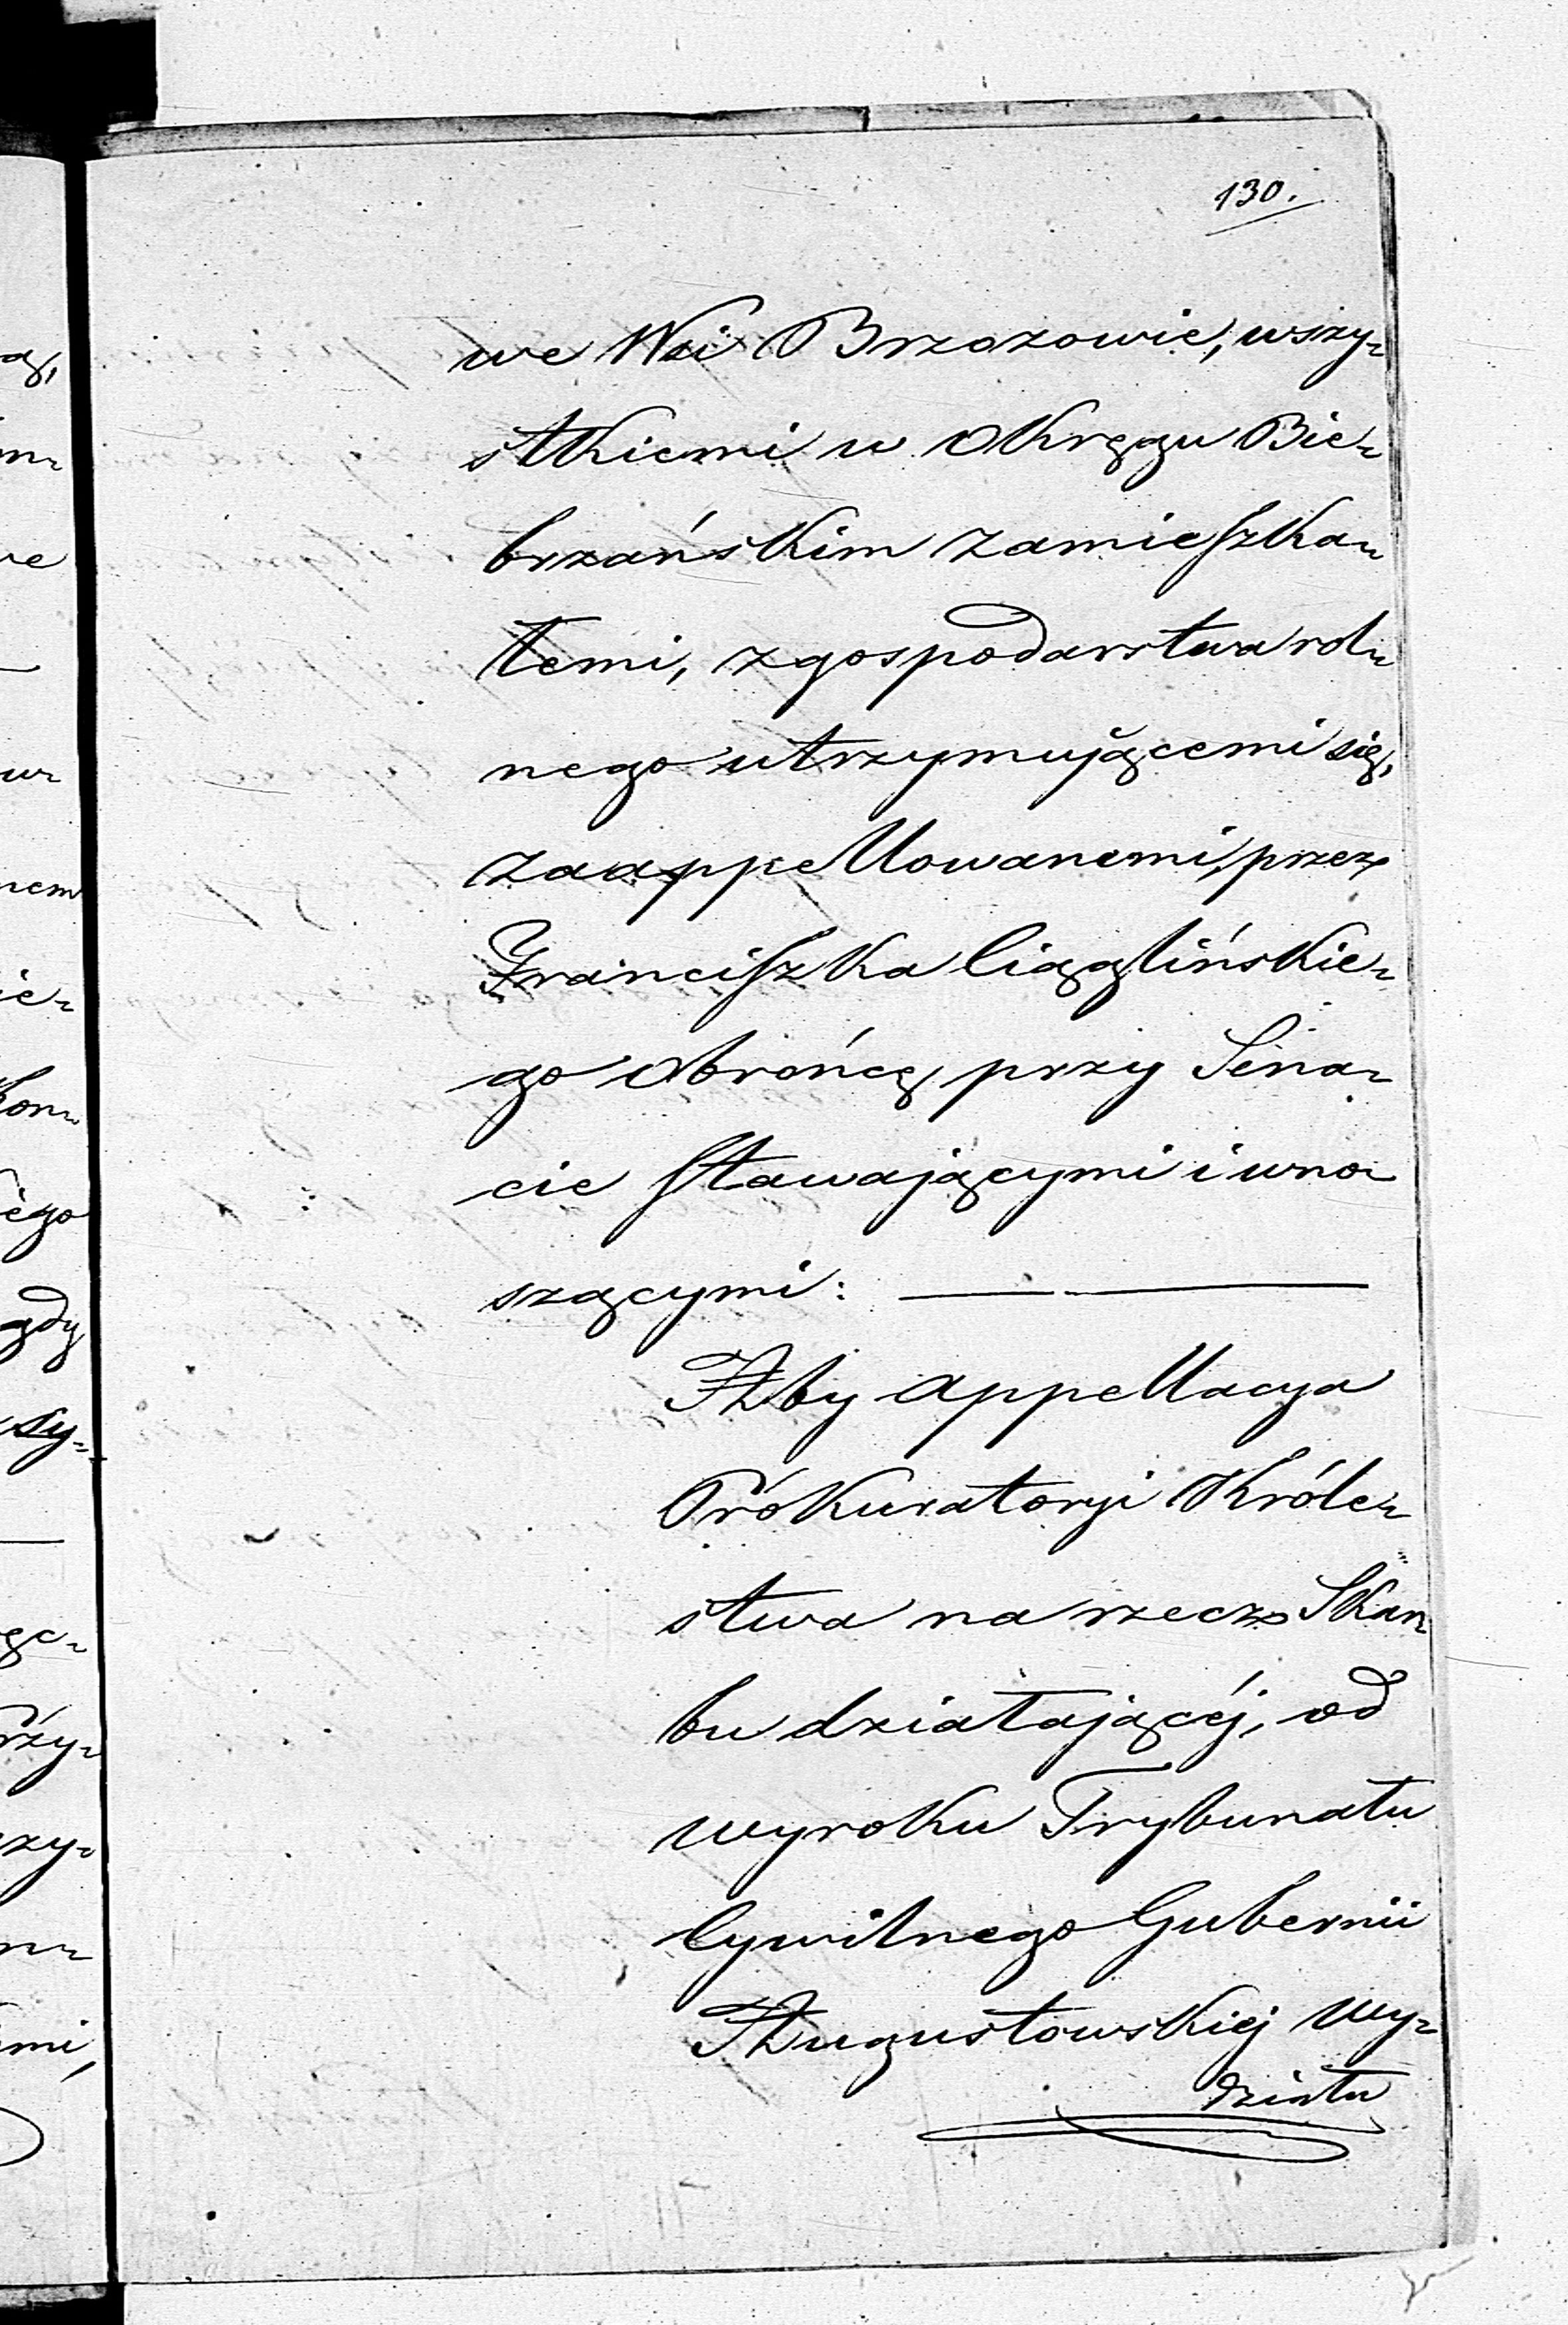 130.
we Wsi Brzozowie, wszy-
stkiemi w Okręgu Bie-
brzańskim zamieszka-
łemi, z gospodarstwa rol-
nego utrzymującemi się,
zaappellowanemi, przez
Franciszka Ciąglińskie-
go obrońcę przy Sena-
cie stawającymi i wno-
szącymi:
Ażby appellacya
Prokuratoryi Króle-
stwa na rzecz Skar-
bu działającéj, od
wyroku Trybunału
Cywilnego Gubernii
Augustowskiej Wy-
działu